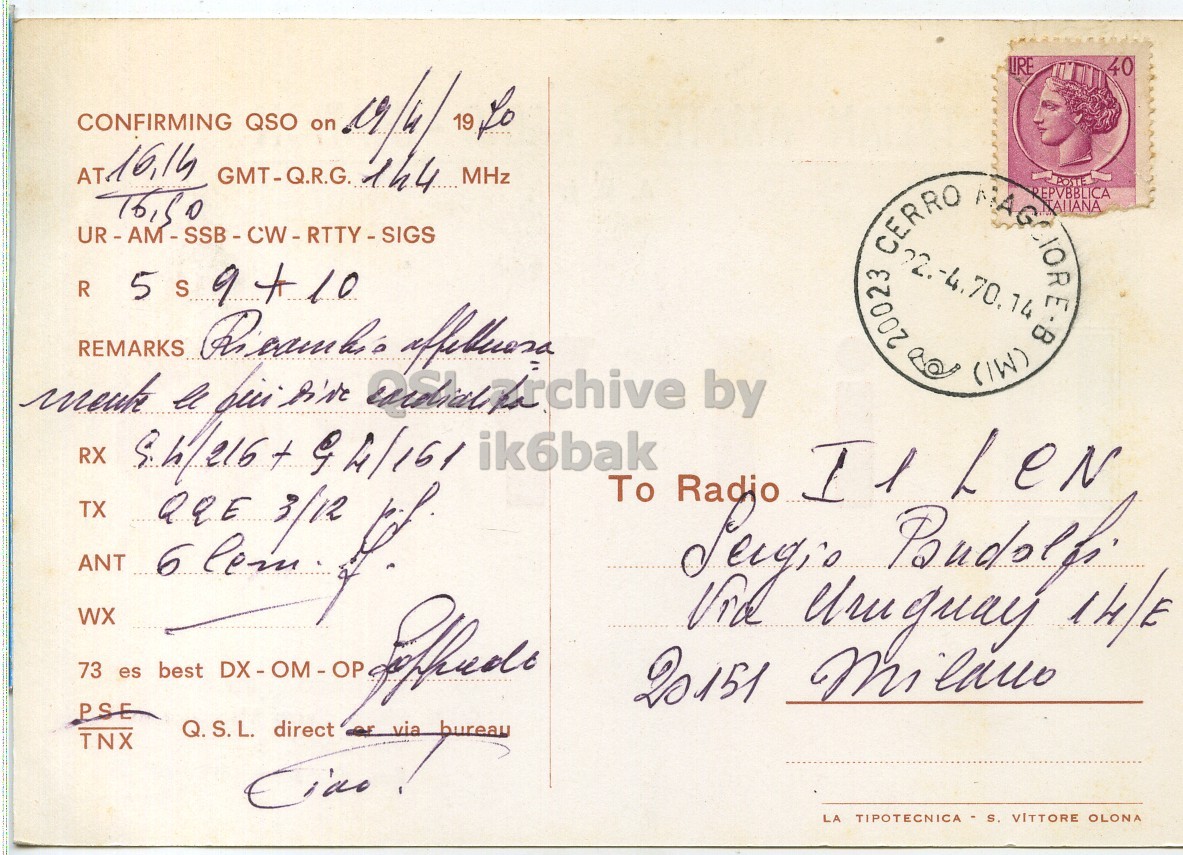 CONFIRMING QSO on 19/4/ 1970
AT 16,14 GMT - Q.R.G. 144 MHz
16,50
UR - AM - SSB - CW - RTTY - SIGS
R 5 S 9 + 10
REMARKS Ricambio affettuosa=
mente le più vive cordialità.
RX G4/216 + G4/161
TX QQE 3/12 p.p.
ANT 6 lem.
WX
73 es best DX - OM - OP Goffredo
PSE
TNX Q.S.L. direct or via bureau
Ciao!
LIRE 40
POSTE
REPVBBLICA
ITALIANA
20023 CERRO MAGGIORE - B (MI)
22.-4.70.14
QSL archive by
ik6bak
To Radio I1 LCN
Sergio Pandolfi
Via Uruguay 14/E
20151 Milano
LA TIPOTECNICA - S. VITTORE OLONA